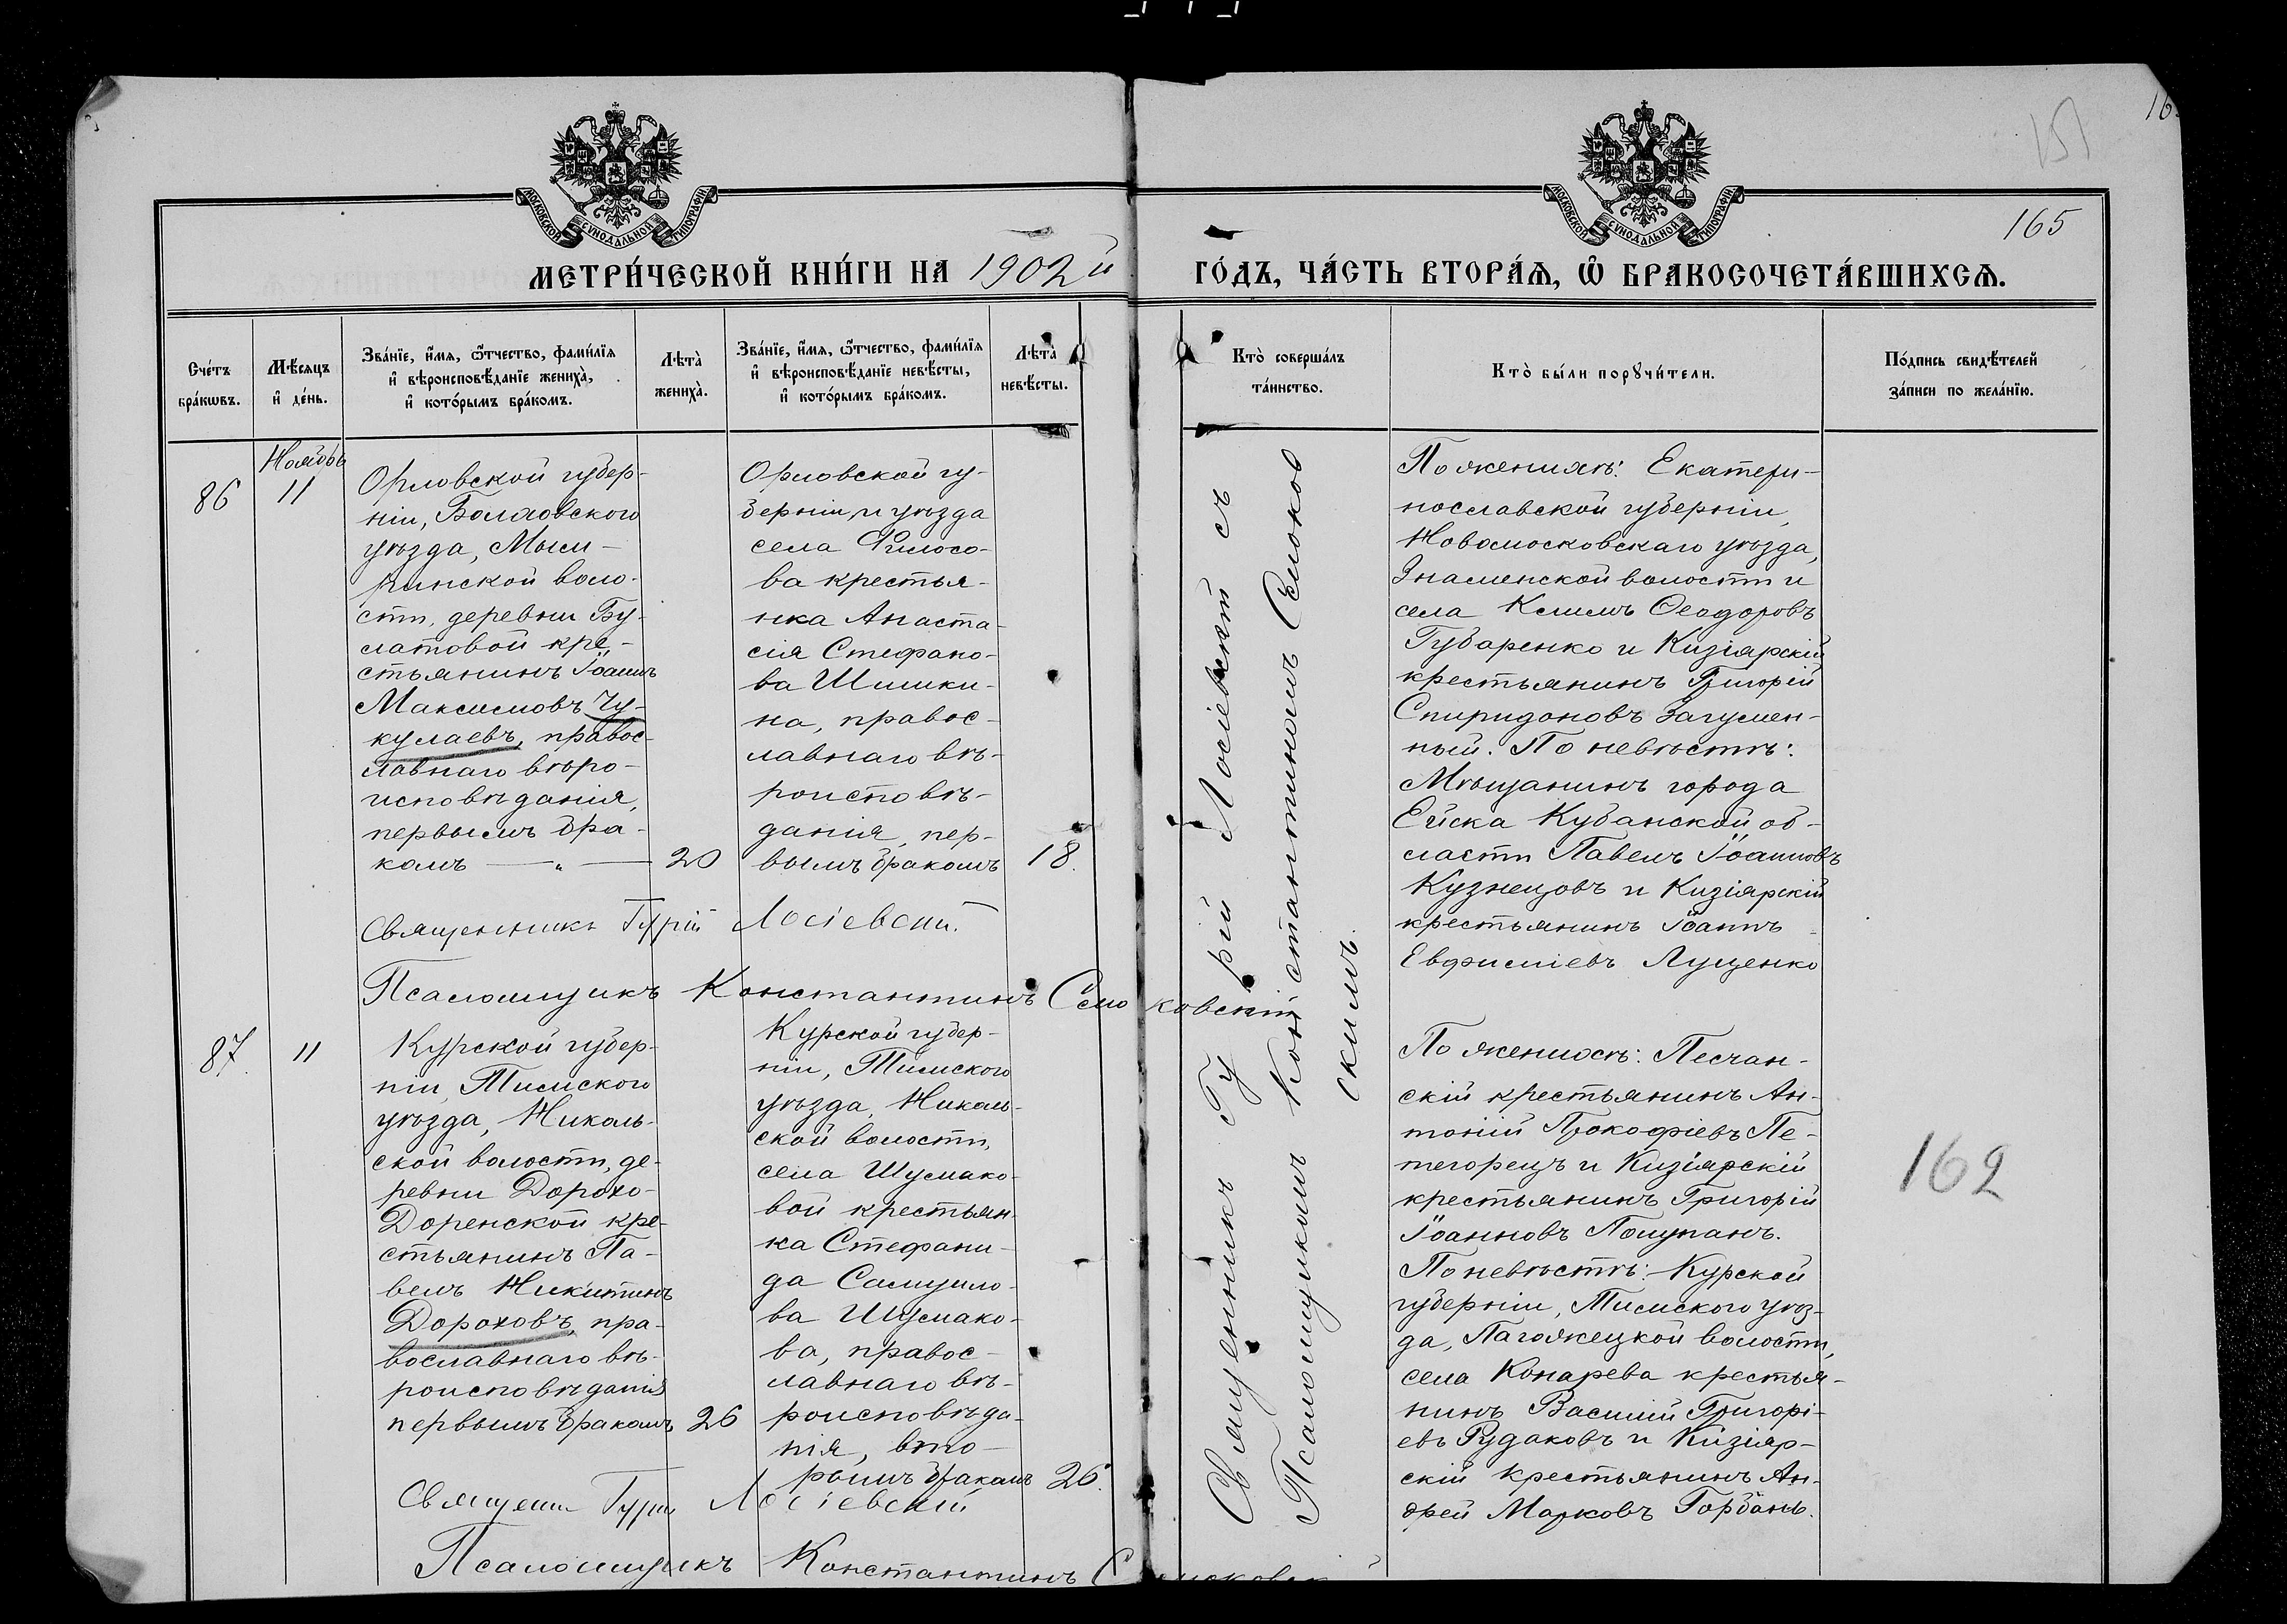 165
МОСКОВСКОЙ СѴНОДАЛЬНОЙ ТИПОГРАФІИ
МОСКОВСКОЙ СѴНОДАЛЬНОЙ ТИПОГРАФІИ
МЕТРИ́ЧЕСКОЙ КНИ́ГИ НА 1902й
ГО́ДЪ, ЧА́СТЬ ВТОРА́Ѧ, Ѡ҆ БРАКОСОЧЕТА́ВШИХСѦ.
Сче́тъ
бра́кѡвъ.
Мѣ́сѧцъ
и҆ де́нь.
Зва́нїе, и҆́мѧ, ѻ҆́тчество, фами́лїѧ
и҆ вѣроисповѣ́данїе жениха̀,
и҆ кото́рымъ бра́комъ.
Лѣта̀
жениха̀.
Зва́нїе, и҆́мѧ, ѻ҆́тчество, фами́лїѧ
и҆ вѣроисповѣ́данїе невѣ́сты,
и҆ кото́рымъ бра́комъ.
Лѣта̀
невѣ́сты.
Кто̀ соверша́лъ
та́инство.
Кто̀ бы́ли порꙋчи́тели.
По́дпись свидѣ́телей
за́писи по жела́нїю.
86
Ноябрь
11
Орловской губер-
ніи, Болховского
уѣзда,
воло-
сти, деревни Бу-
латовой кре-
стьянинъ Іоаннъ
Максимовъ Чу-
кулаевъ, правос-
лавнаго вѣро-
исповѣданія,
первымъ бра-
комъ — „ — 20
Орловской гу-
берніи, и уѣзда
села Филосо-
ва крестья-
нка Анаста-
сія Стефано-
ва Шишки-
на, правос-
лавнаго вѣ-
роисповѣ-
данія, пер-
вымъ бракомъ 18.
Священникъ Гурій Лосіевскій.
Псаломщикъ Константинъ Смоковскій
Священникъ Гурій Лосіевскій съ
Псаломщикомъ Константиномъ Смоков
скимъ.
По женихѣ: Екатери-
нославской губерніи,
Новомосковскаго уѣзда,
Знаменской волости и
села Климъ Ѳеодоровъ
Губаренко и Кизіярскій
крестьянинъ Григорій
Спиридоновъ Загумен-
ный. По невѣстѣ:
Мѣщанинъ города
Ейска Кубанской об-
ласти Павелъ Іоанновъ
Кузнецовъ и Кизіярскій
крестьянинъ Іоаннъ
Евфиміевъ Луценко
87.
11
Курской губер-
ніи, Тимского
уѣзда, Николь-
ской волости, де-
ревни Дорохо-
Доренской кре-
стьянинъ Па-
велъ Никитинъ
Дороховъ, пра-
вославнаго вѣ-
роисповѣданія
первымъ бракомъ 26
Курской губер-
ніи, Тимского
уѣзда, Николь-
ской волости,
села Шумако-
вой крестьян-
ка Стефани-
да Самуило-
ва Шумако-
ва, правос-
лавнаго вѣ-
роисповѣда-
нія, вто-
рымъ бракомъ 26.
Священн Гурій Лосіевскій
Псаломщикъ Константинъ
По женихѣ: Песчан-
скій крестьянинъ Ан-
тоній Прокофіевъ Пе-
тегорецъ и Кизіярскій
крестьянинъ Григорій
Іоанновъ Полупанъ.
По невѣстѣ: Курской
губерніи, Тимского уѣз-
да, волости,
села Конарева крестья-
нинъ Василій Григорі-
евъ Рудаковъ и Кизіяр-
скій крестьянинъ Ан-
дрей Марковъ Горбань.
162